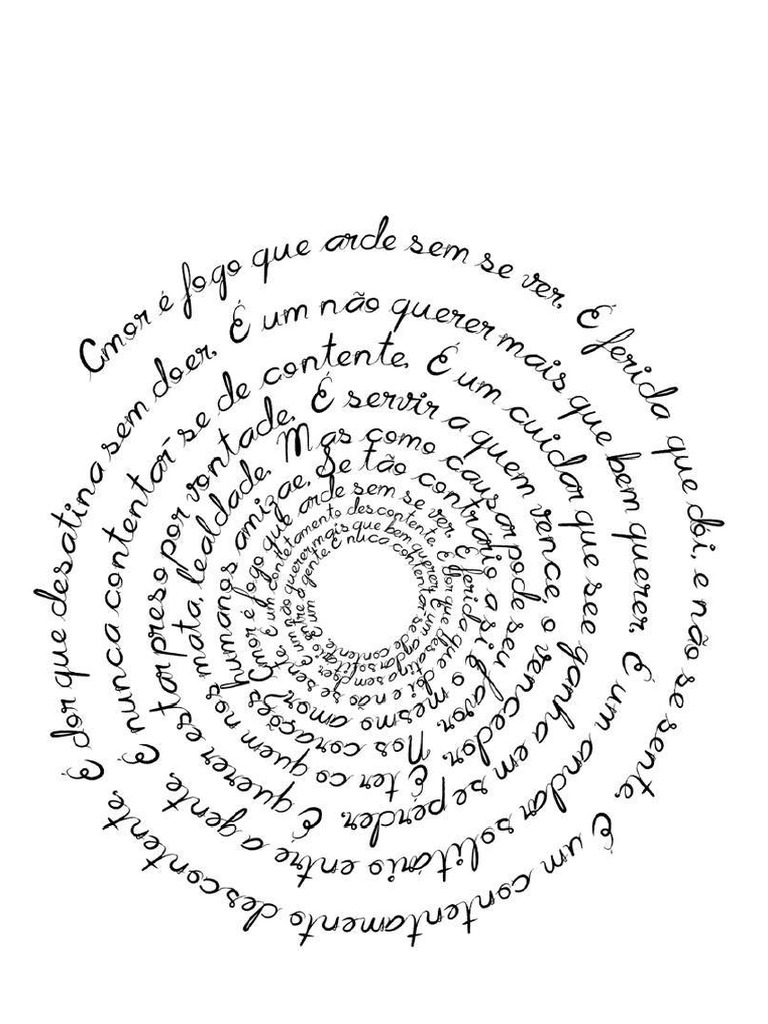 Amor é fogo que arde sem se ver. É ferida que dói, e não se sente. É um contentamento descontente. É dor que desatina sem doer. É um não querer mais que bem querer. É um andar solitário entre a gente. É nunca contentar-se de contente. É um cuidar que see ganha em se perder. É querer estar preso por vontade. É servir a quem vence, o vencedor. É ter co quem nos mata, lealdade. Mas como causar pode seu favor. Nos corações humanos amizae. Se tão contrário a si é o mesmo amor? Amor é fogo que arde sem se ver. É ferida que dói e não se sente. É um contetamento descontente. É dor que desatina sem doer. É um não querer mais que bem querer. É um andar solitário entre a gente. É nuca contentar se de contente. É um